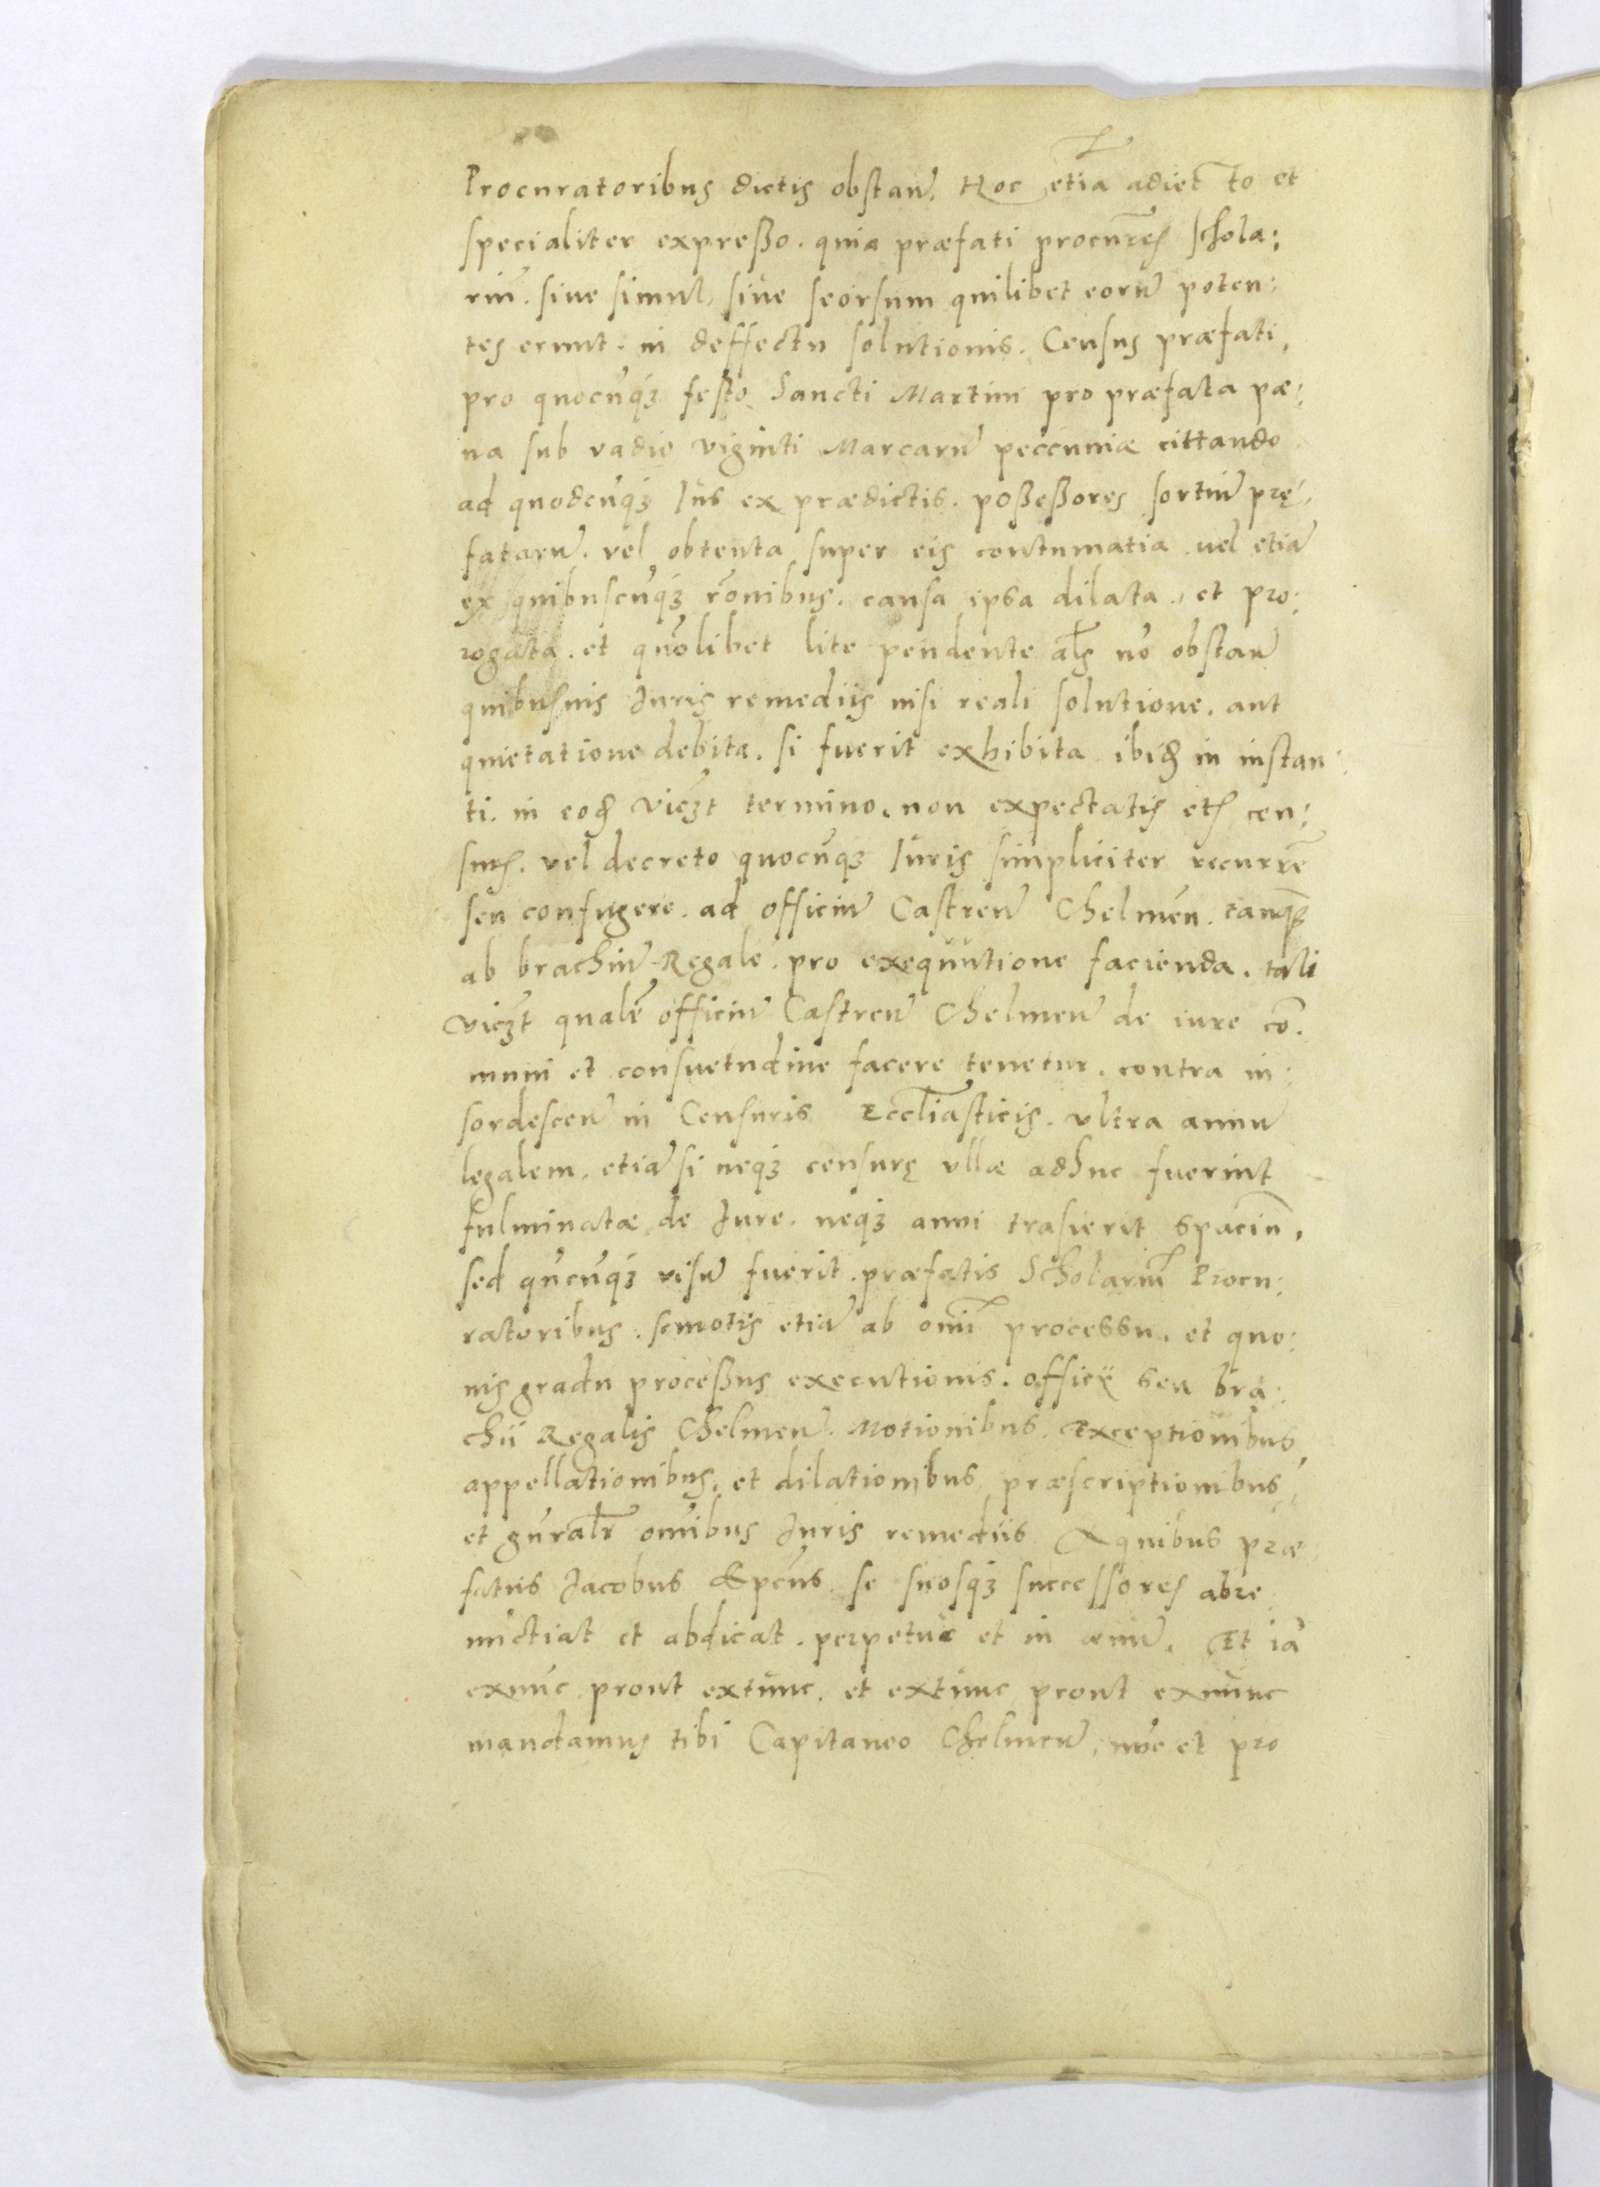 Procuratoribus dictis obstan̄. Hoc etiā adiecto et
specialiter expreßo. quia præfati procur̄es schola:
riū. siue simul, siue seorsum quilibet eorū poten:
tes erunt. in deffectu solutionis. Census præfati,
pro quocūq3 festo Sancti Martini pro præfata pæ:
na sub vadio viginti Marcarū peccuniæ cittando
ad quodcūq3 Ius ex prædictis. poßeßores sortiū prę:
fatarū. vel obtenta super eis contumatia vel etiā
ex quibuscūq3 rōnibus. causa ipsa dilata, et pro:
rogata. et quōlibet lite pendente als̄ nō obstan̄
quibusuis Iuris remediis nisi reali solutione. aut
quietatione debita. si fuerit exhibita ibid̄ in instan:
ti. in eod̄ vicz̄t termino. non expectatis et̄s cen:
suris. vel decreto quocūq3 Iuris simpliciter recurrē
seu confugere. ad officiū Castren̄ Chelmen̄. tanq̄
ab brachiū Regale. pro exequutione facienda. tali
vicz̄t qualē officiū Castren̄ Chelmen̄ de iure cō.
muni et consuetudine facere tenetur. contra in:
sordescen̄ in Censuris Eccl̄iasticis. vltra annū
legalem. etiā si neq3 censurę vllæ adhuc fuerint
fulminatæ de Iure. neq3 anni trasierit spaciū,
sed qn̄cūq3 visū fuerit. præfatis Scholariū Procu:
ratoribus. semotis etiā ab om̄i processu. et quo:
uis gradu proceßus executionis. officij seu bra:
chii Regalis Chelmen̄. Motionibus, Exceptionibus,
appellationibus. et dilationibus, præscriptionibus,
et gn̄ralr̄ omībus Iuris remediis A quibus præ
fatus Jacobus Ep̄cus se suosq3 successores abre
nūctiat et abdicat. perpetuæ et in æuū. Et iā
exnūc prout extūnc. et extūnc prout exnūnc
mandamus tibi Capitaneo Chelmen̄, nūc et pro